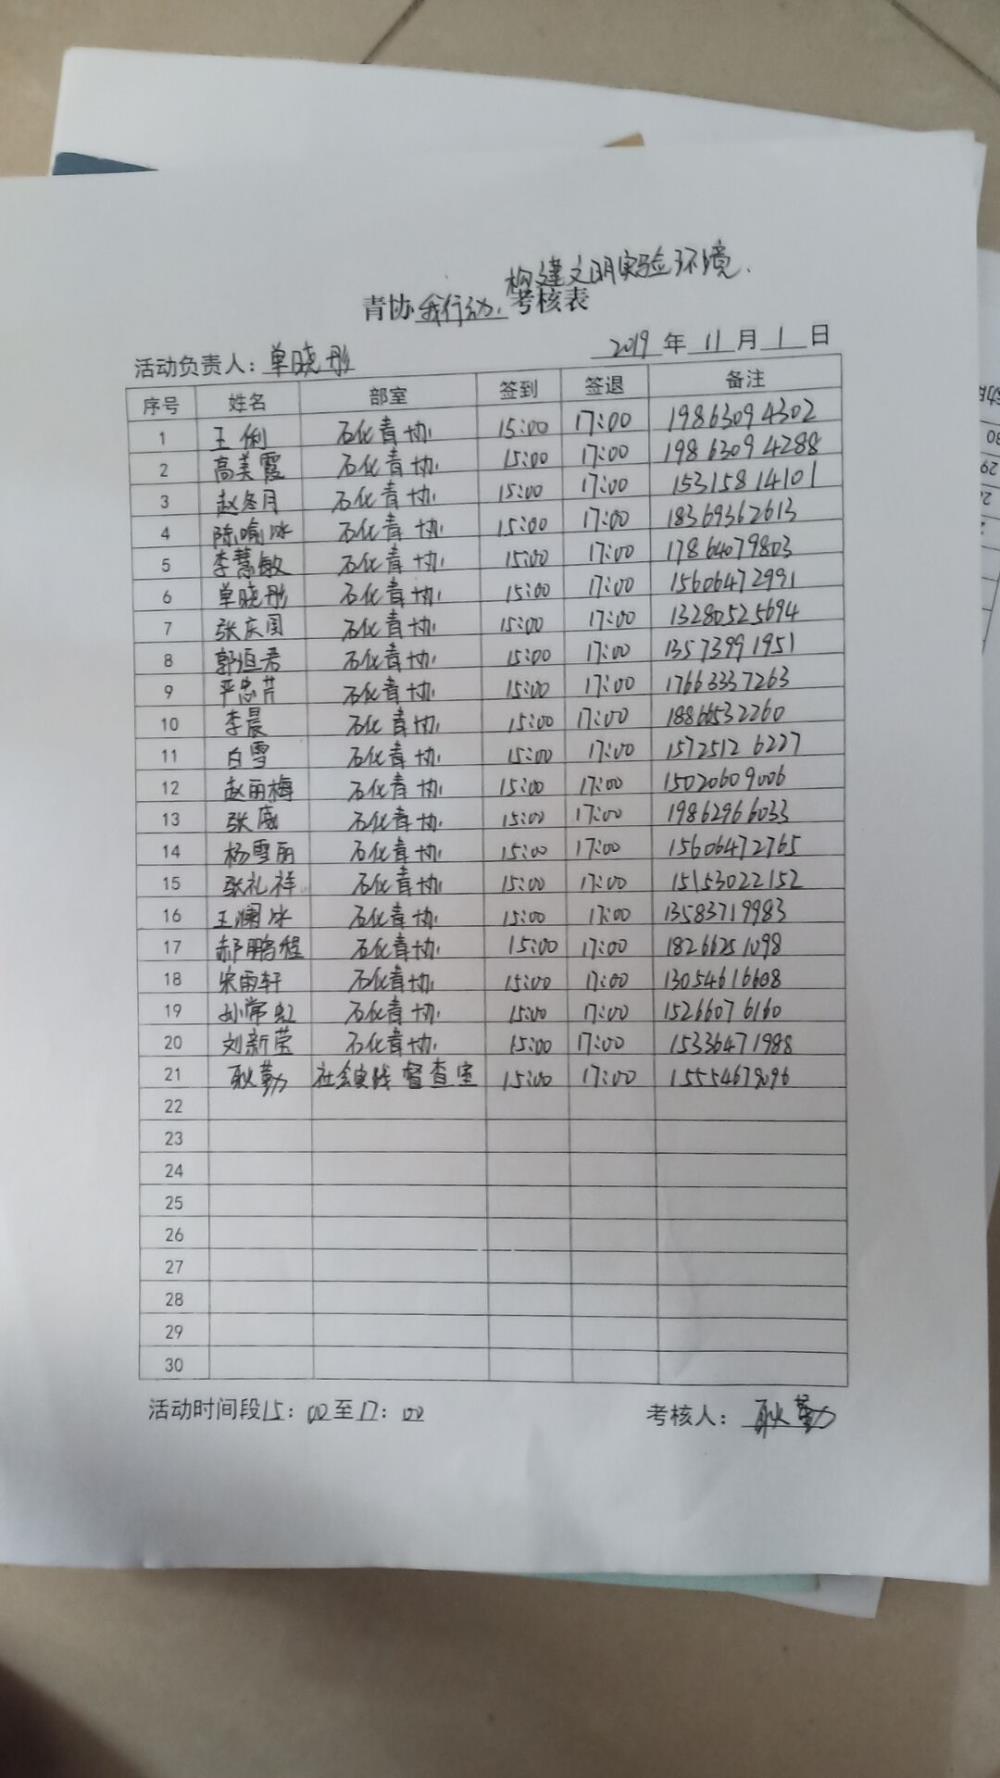 构建文明实验环境.
青协 我行动, 考核表
活动负责人: 单晓彤 2019 年 11 月 1 日
序号 姓名 部室 签到 签退 备注
1 王俐 石化青协 15:00 17:00 19863094302
2 高美霞 石化青协 15:00 17:00 19863094288
3 赵冬月 石化青协 15:00 17:00 15315814101
4 陈喻冰 石化青协 15:00 17:00 18369362613
5 李慧敏 石化青协 15:00 17:00 17864079803
6 单晓彤 石化青协 15:00 17:00 15606472991
7 张庆国 石化青协 15:00 17:00 13280525694
8 郭恒君 石化青协 15:00 17:00 13573991951
9 严忠芹 石化青协 15:00 17:00 17663337263
10 李晨 石化青协 15:00 17:00 18866532260
11 白雪 石化青协 15:00 17:00 15725126227
12 赵丽梅 石化青协 15:00 17:00 15020609006
13 张威 石化青协 15:00 17:00 19862966033
14 杨雪丽 石化青协 15:00 17:00 15606472765
15 张礼祥 石化青协 15:00 17:00 15153022152
16 王澜冰 石化青协 15:00 17:00 13583719983
17 郝鹏程 石化青协 15:00 17:00 18266251098
18 宋雨轩 石化青协 15:00 17:00 13054616608
19 孙常虹 石化青协 15:00 17:00 15266076160
20 刘新莹 石化青协 15:00 17:00 15336471988
21 耿勤 社会实践督查室 15:00 17:00 15554679096
22
23
24
25
26
27
28
29
30
活动时间段15:00至17:00 考核人: 耿勤